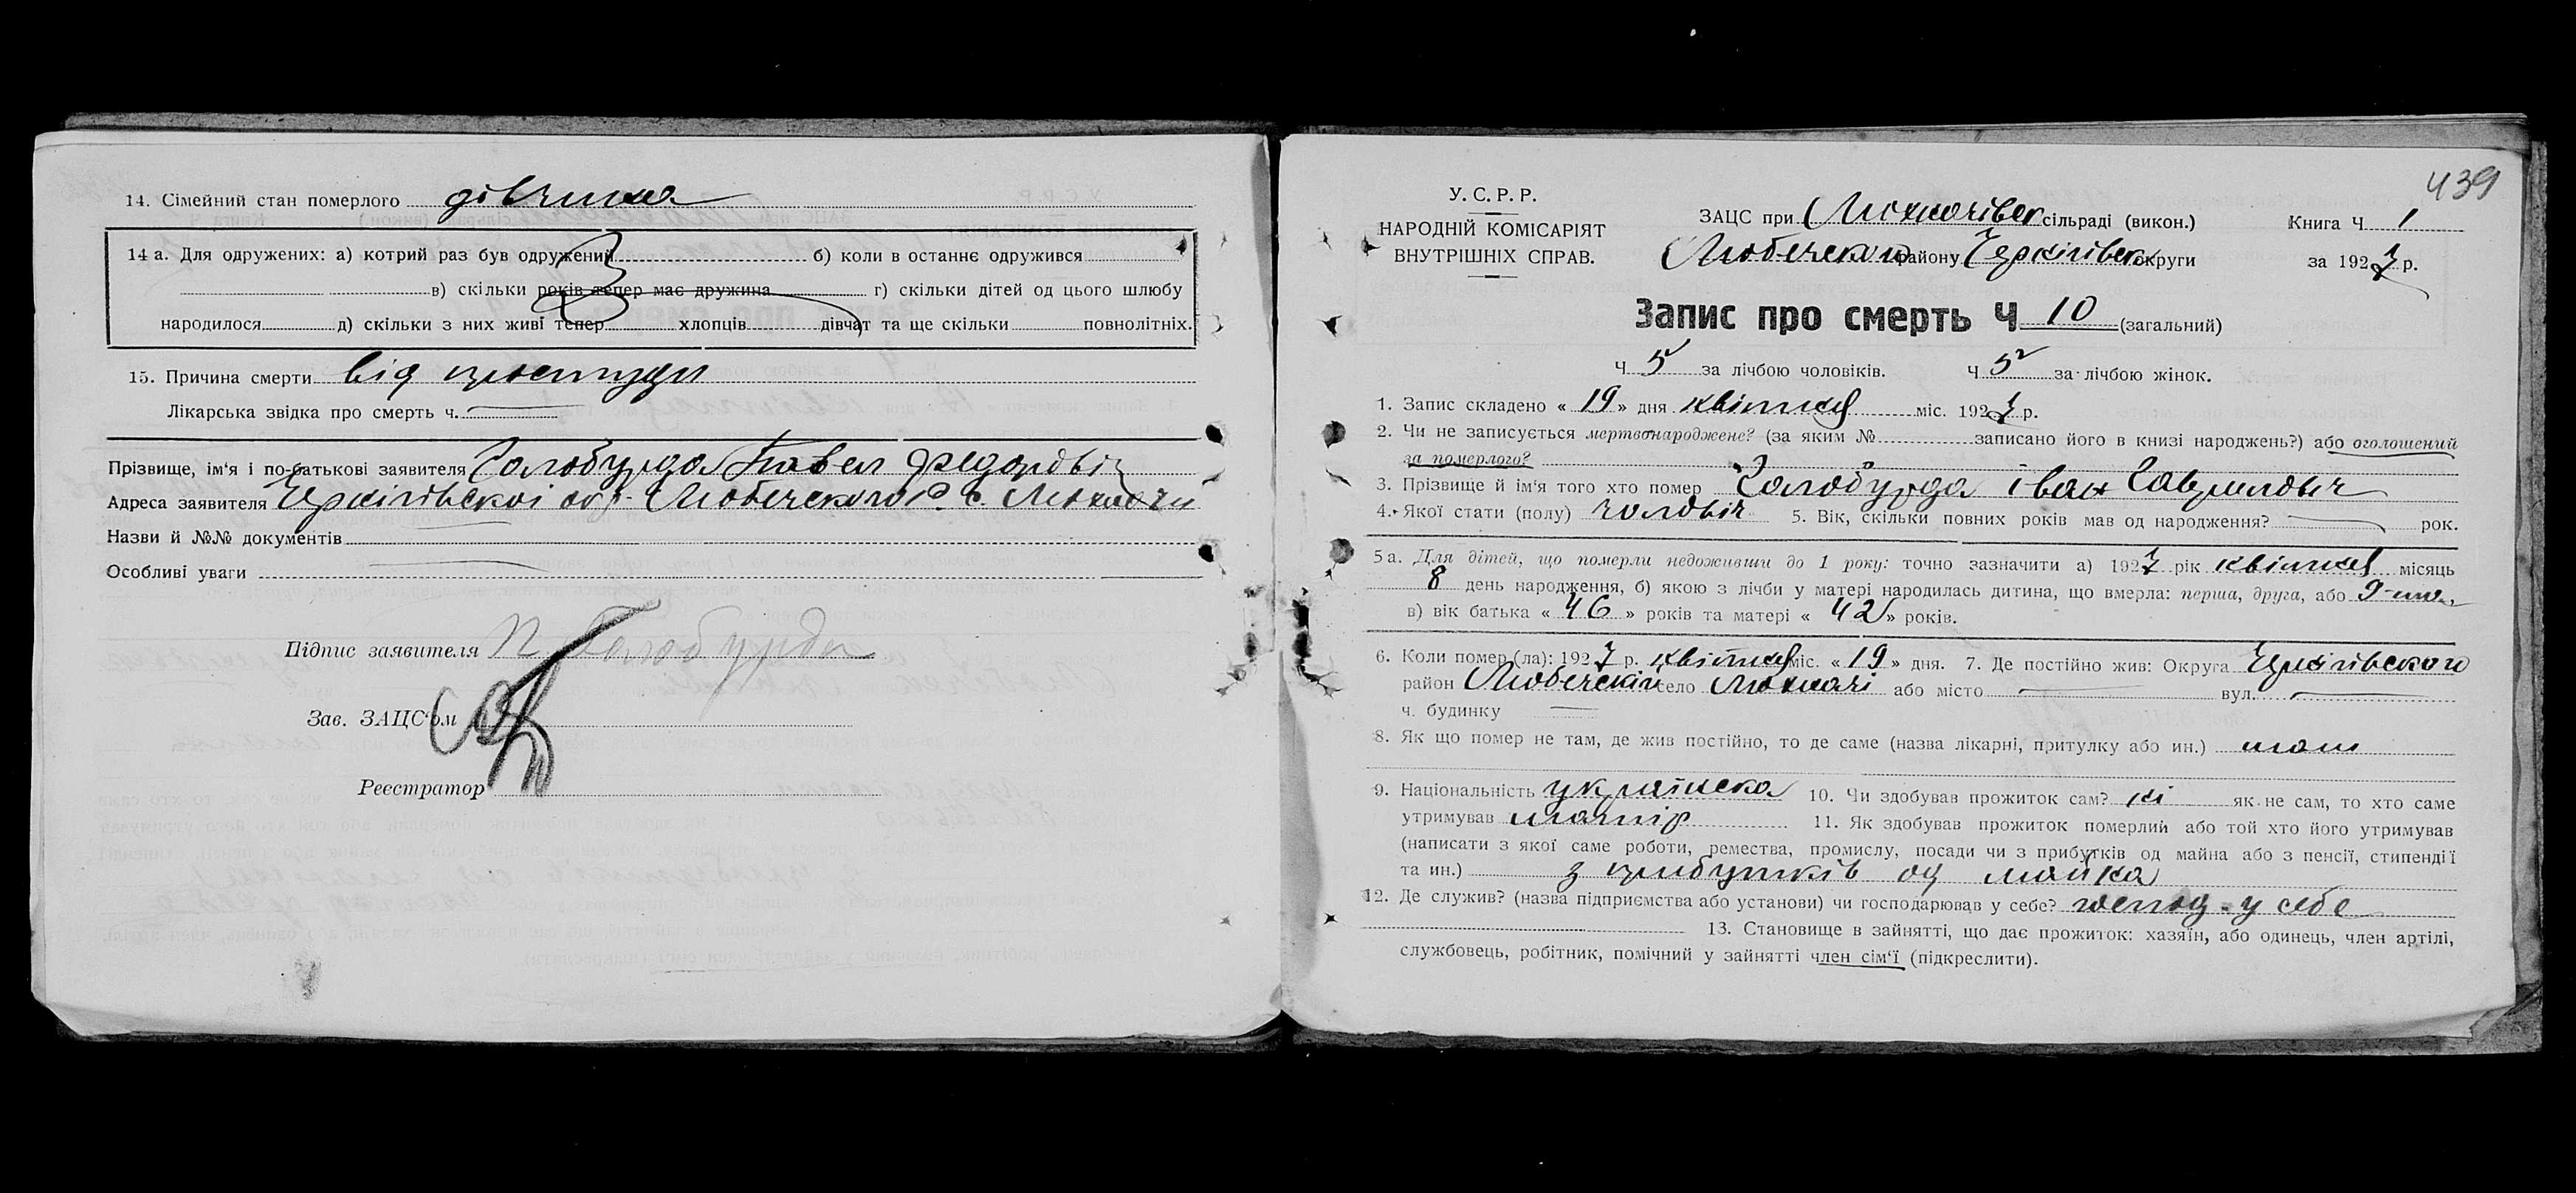 14. Сімейний стан померлого дівчина
14 а. Для одружених: а) котрий раз був одружений б) коли в останнє одружився
в) скільки років тепер має дружина г) скільки дітей од цього шлюбу
народилося д) скільки з них живі тепер хлопців дівчат та ще скільки повнолітніх.
15. Причина смерти від простуди
Лікарська звідка про смерть ч.
Прізвище, ім'я і по-батькові заявителя Голобурда Павел Федоровіч
Адреса заявителя Чернігівскої окр. Любечского Р. с. Мохначи
Назви й №№ документів
Особливі уваги
Підпис заявителя П Голобурда
Зав. ЗАЦС'ом
Реєстратор
439
У. С. Р. Р.
НАРОДНІЙ КОМІСАРІЯТ
ВНУТРІШНІХ СПРАВ.
ЗАЦС при Мохначівск сільраді (викон.) Книга Ч 1
Любечского району Чернігівск округи за 1927 р.
Запис про смерть Ч 10 (загальний)
Ч 5 за лічбою чоловіків. Ч 5 за лічбою жінок.
1. Запис складено « 19 » дня квітня міс. 1927 р.
2. Чи не записується мертвонароджене? (за яким № записано його в книзі народжень?) або оголошений
за померлого?
3. Прізвище й ім'я того хто помер Голобурда Іван Гаврилович
4. Якої стати (полу) чоловіч 5. Вік, скільки повних років мав од народження? рок.
5 а. Для дітей, що померли недоживши до 1 року: точно зазначити а) 1927 рік квітня місяць
8 день народження, б) якою з лічби у матері народилась дитина, що вмерла: перша, друга, або 9-та
в) вік батька « 46 » років та матері « 42 » років.
6. Коли помер (ла): 1927 р. квітня міс. « 19 » дня. 7. Де постійно жив: Округа Чернігівского
район Любечскій село Мохначі або місто вул.
ч. будинку
8. Як що помер не там, де жив постійно, то де саме (назва лікарні, притулку або ин.) там
9. Національність українска 10. Чи здобував прожиток сам? ні як не сам, то хто саме
утримував матір 11. Як здобував прожиток померлий або той хто його утримував
(написати з якої саме роботи, ремества, промислу, посади чи з прибутків од майна або з пенсії, стипендії
та ин.) з прибутків од майна
12. Де служив? (назва підприємства або установи) чи господарював у себе? господ. у себе
13. Становище в зайнятті, що дає прожиток: хазяїн, або одинець, член артілі,
службовець, робітник, помічний у зайнятті член сім'ї (підкреслити).